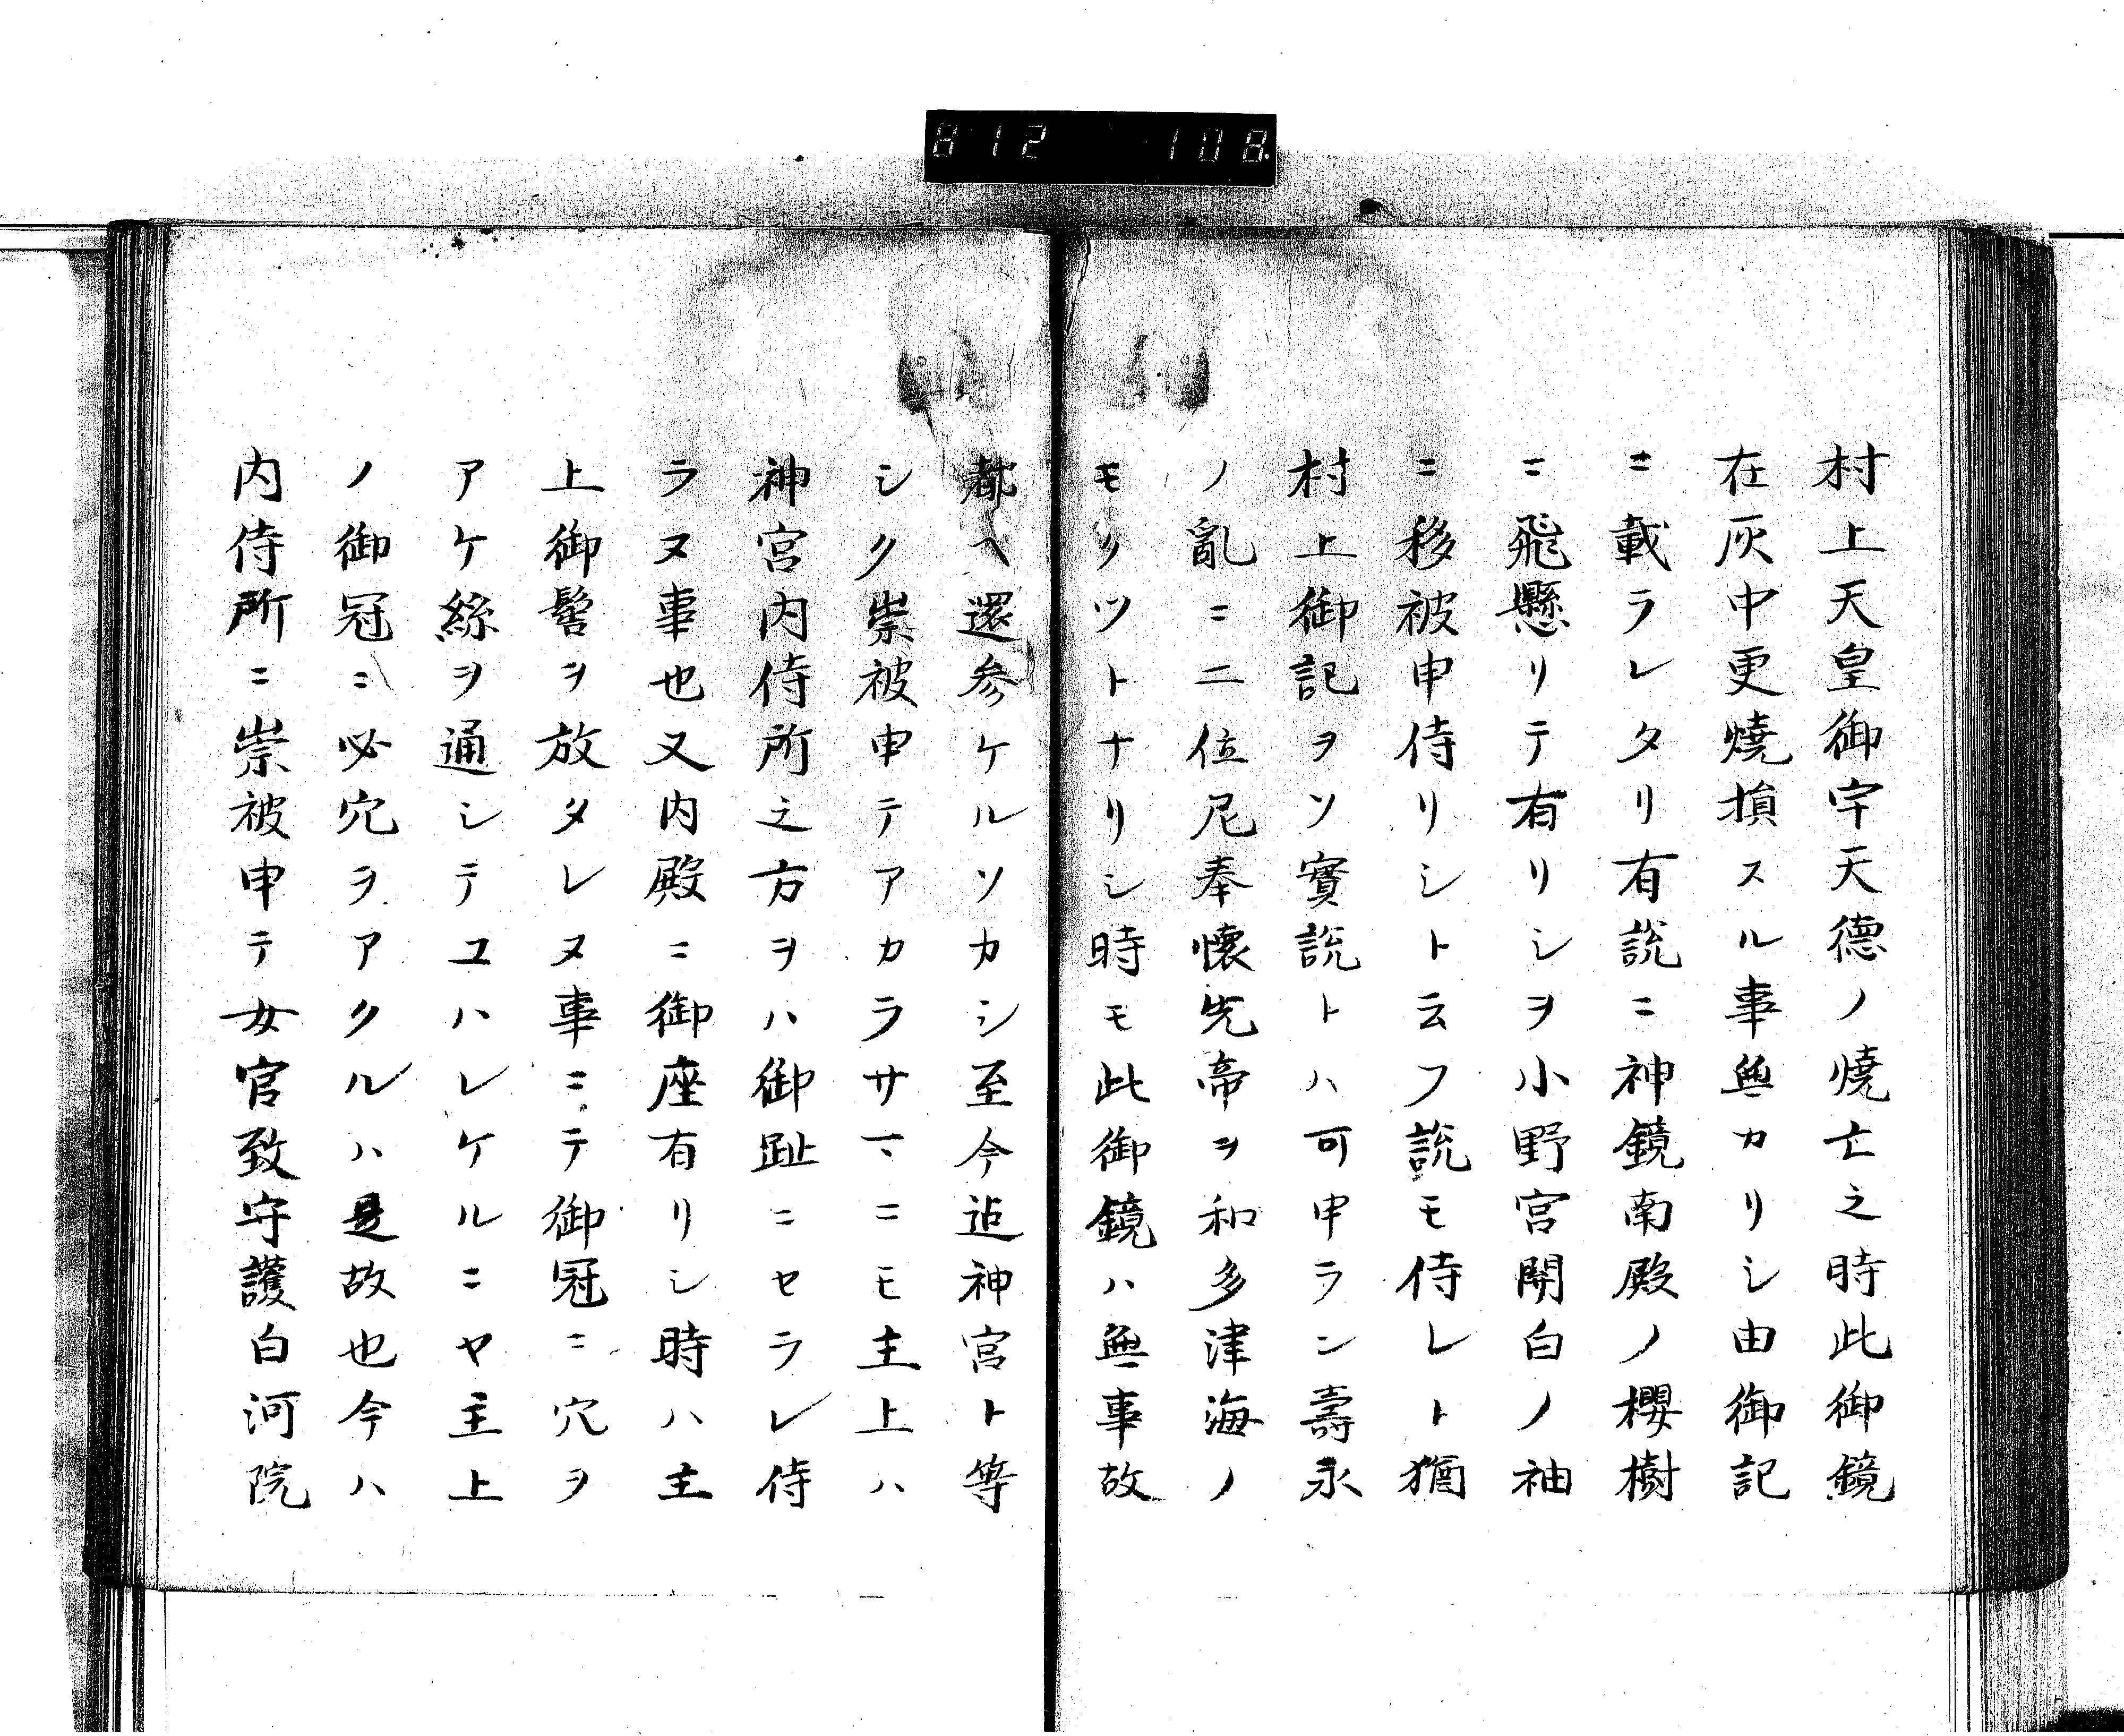 812 108
村上天皇御宇天德ノ燒亡之時此御鏡
在灰中更燒損スル事無カリシ由御記
ニ載ラレタリ有說ニ神鏡南殿ノ櫻樹
ニ飛懸リテ有リシヲ小野宮関白ノ袖
ニ移被申侍リシト云フ說モ侍レト猶
村上御記ヲソ實說トハ可申ラン壽永
ノ亂ニ二位尼奉懷先帝ヲ和多津海ノ
モクツトナリシ時モ此御鏡ハ無事故
都ヘ還参ケルソカシ至今迄神宮ト等
シク崇被申テアカラサマニモ主上ハ
神宮内侍所之方ヲハ御趾ニセラレ侍
ラヌ事也又内殿ニ御座有リシ時ハ主
上御髻ヲ放タレヌ事ニテ御冠ニ穴ヲ
アケ絲ヲ通シテユハレケルニヤ主上
ノ御冠ニ必穴ヲアクルハ是故也今ハ
内侍所ニ崇被申テ女官致守護白河院